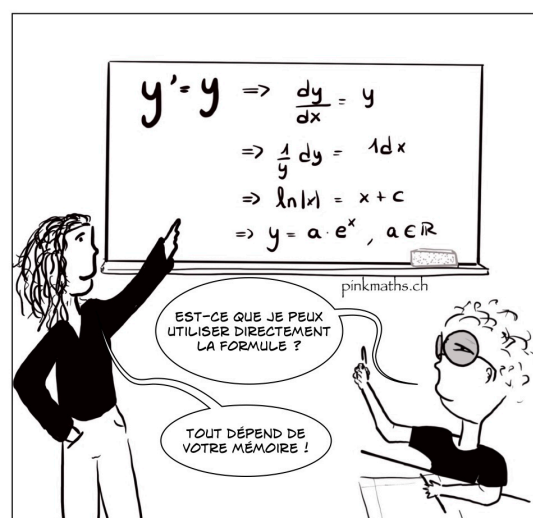 y' = y => dy/dx = y
=> 1/y dy = 1dx
=> ln|x| = x + c
=> y = a · e^x , a ∈ ℝ
pinkmaths.ch
EST-CE QUE JE PEUX
UTILISER DIRECTEMENT
LA FORMULE ?
TOUT DÉPEND DE
VOTRE MÉMOIRE !